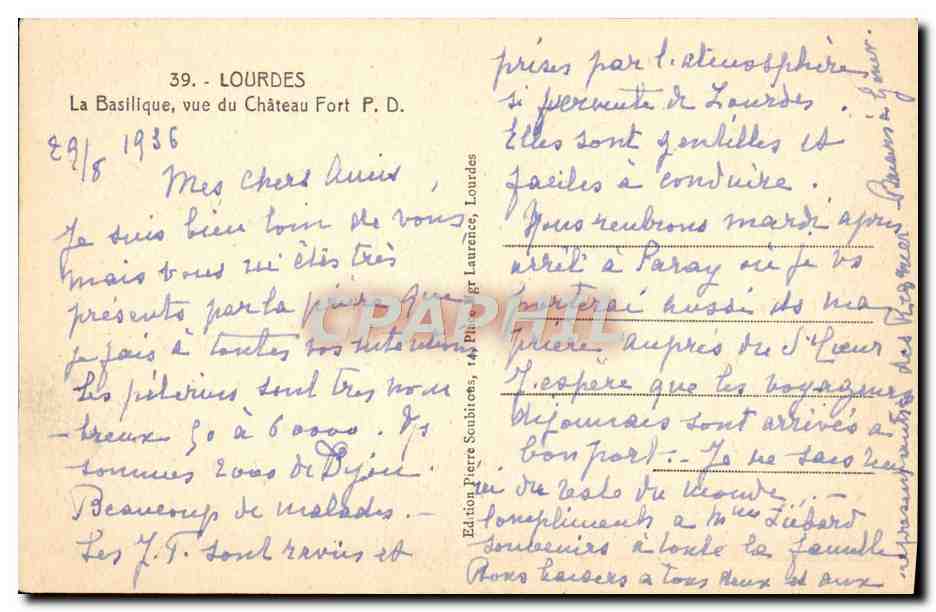 39. - LOURDES
La Basilique, vue du Château Fort P. D.
29/8 1936
Mes chers Amis,
Je suis bien loin de vous,
mais vous m'êtes très
présents par la prière que
je fais à toutes vos intentions
Les pélerins sont très nom
-breux 50 à 60000. Ns
sommes 2000 de Dijon.
Beaucoup de malades. -
Les J.F. sont ravies et
Edition Pierre Soubirous, 14, Place Mgr Laurence, Lourdes
prises par l'atmosphère
si fervente de Lourdes.
Elles sont gentilles et
faciles à conduire.
Nous rentrons mardi après
arrêt à Paray où je vs
porterai aussi ds ma
prière auprès du St Cœur
J'espère que les voyageurs
dijonnais sont arrivés à
bon port. - Je ne sais rien
du reste du monde. -
Compliments à Mmes
souvenirs à toute la famille
Bons baisers à tous deux et aux
représentantes des
CPARAMA